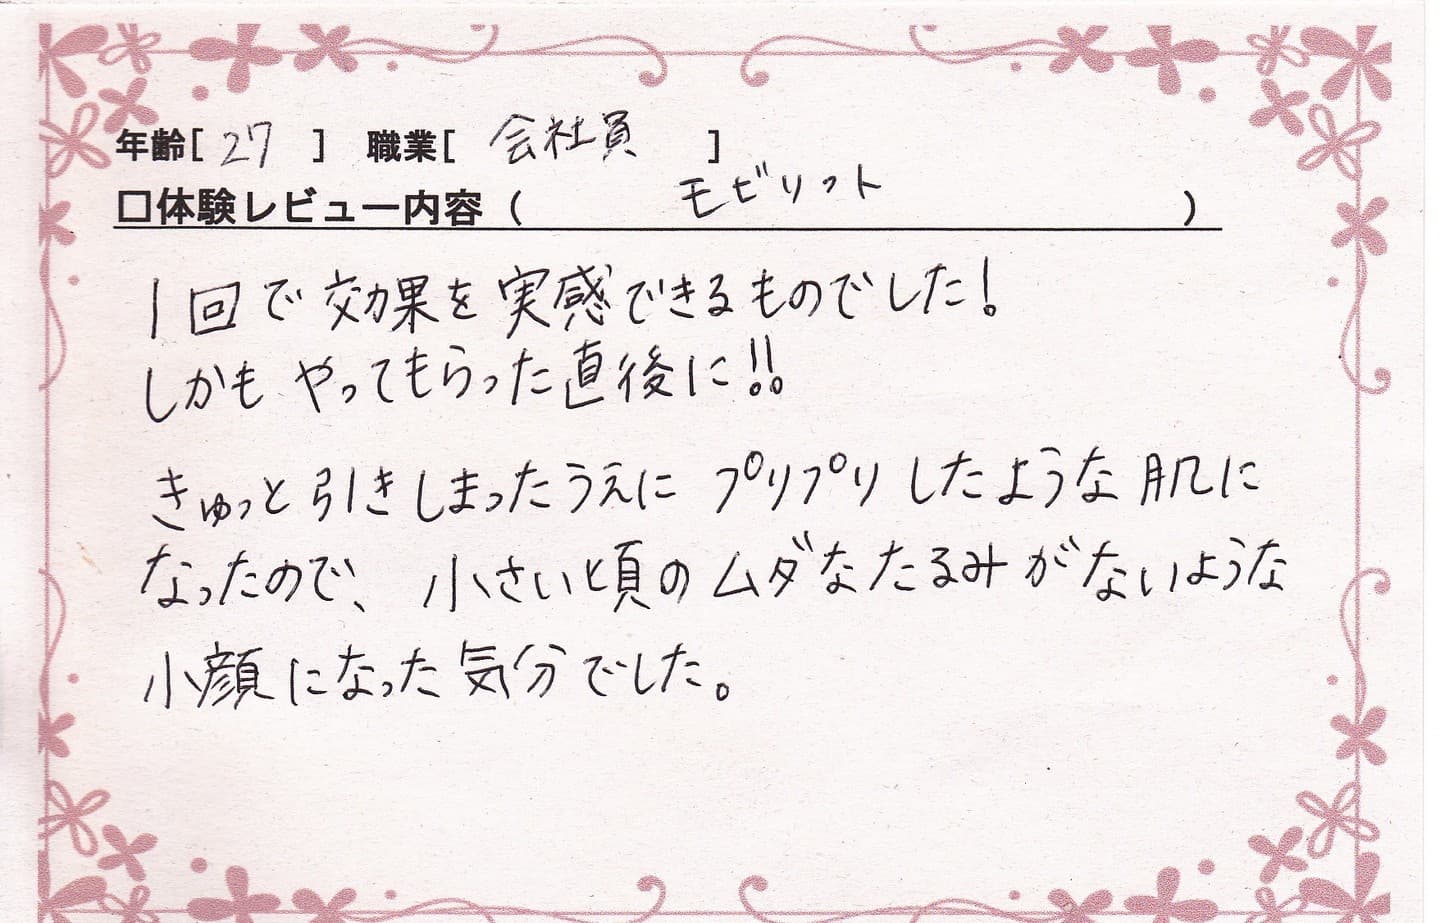 年齢[ 27 ] 職業[ 会社員 ]
□体験レビュー内容( モビリフト )
1回で効果を実感できるものでした!
しかもやってもらった直後に!!
きゅっと引きしまったうえにプリプリしたような肌に
なったので、小さい頃のムダなたるみがないような
小顔になった気分でした。